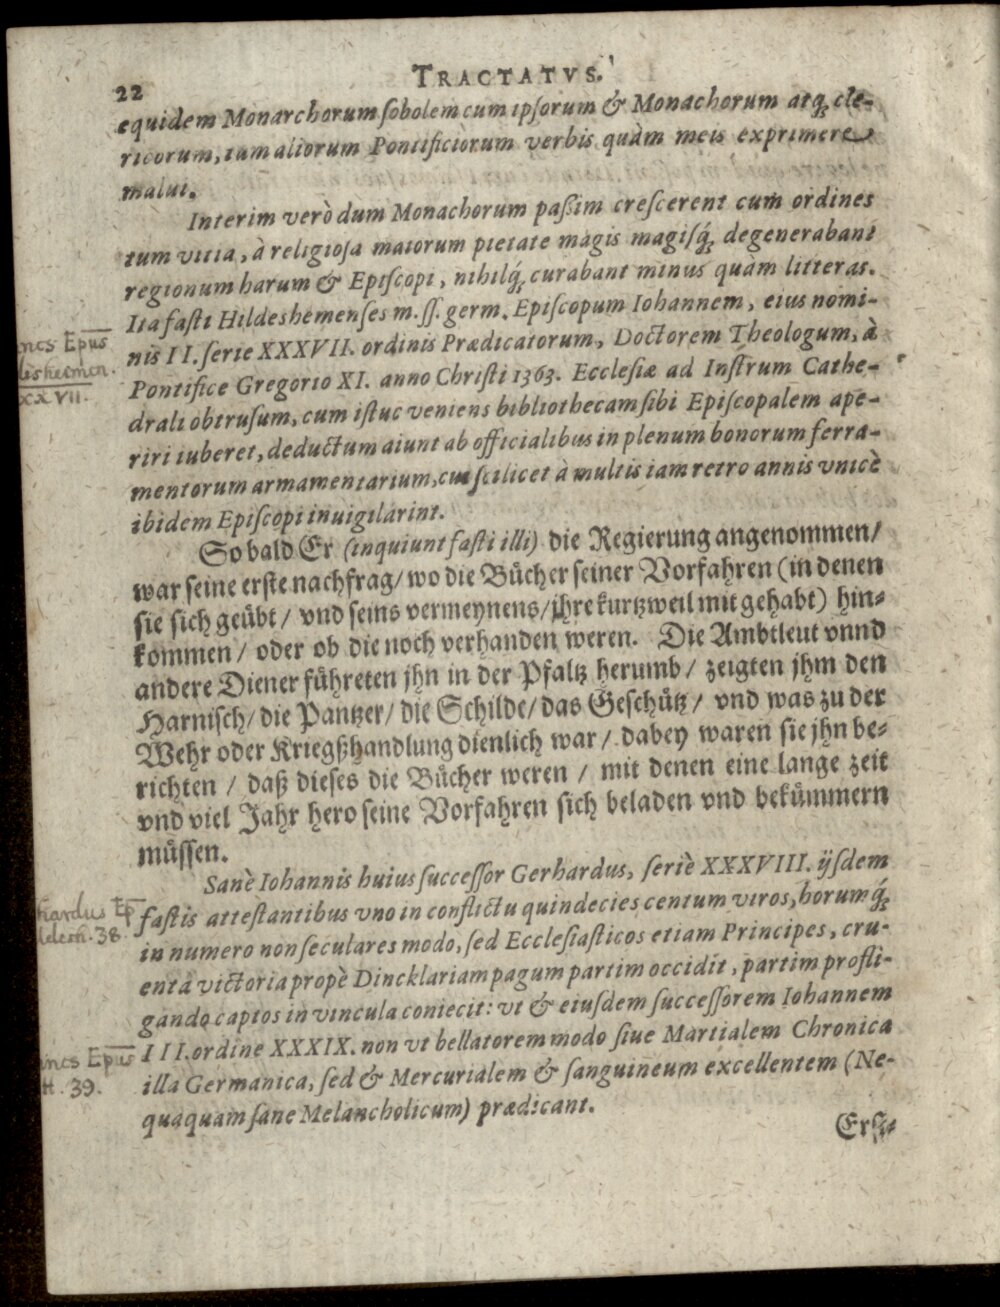 22 TRACTATVS.
equidem Monarchorum ſobolem cum ipſorum & Monachorum atq́; cle-
ricorum, tum aliorum Pontificiorum verbis quàm meis exprimere
malui.
Interim verò dum Monachorum paßim creſcerent cum ordines
tum vitia, à religioſa maiorum pietate magis magiſq́; degenerabant
regionum harum & Epiſcopi, nihilq́; curabant minus quàm litteras.
Ita faſti Hildeshemenſes m. ſſ. germ. Epiſcopum Iohannem, eius nomi-
nis II. ſerie XXXVII. ordinis Prædicatorum, Doctorem Theologum, à
Pontifice Gregorio XI. anno Chriſti 1363. Eccleſiæ ad Inſtrum Cathe-
drali obtruſum, cum iſtuc veniens bibliothecam ſibi Epiſcopalem ape-
riri iuberet, deductum aiunt ab officialibus in plenum bonorum ferra-
mentorum armamentarium, cui ſcilicet à multis iam retro annis vnicè
ibidem Epiſcopi inuigilarint.
So bald Er (inquiunt faſti illi) die Regierung angenommen/
war seine erste nachfrag/ wo die Bücher seiner Vorfahren (in denen
sie sich geübt / vnd seins vermeynens/ jhre kurtzweil mit gehabt) hin-
kommen / oder ob die noch verhanden weren. Die Ambtleut vnnd
andere Diener führeten jhn in der Pfaltz herumb / zeigten jhm den
Harnisch/ die Pantzer/ die Schilde/ das Geschütz / vnd was zu der
Wehr oder Kriegßhandlung dienlich war / dabey waren sie jhn be-
richten / daß dieses die Bücher weren / mit denen eine lange zeit
vnd viel Jahr hero seine Vorfahren sich beladen vnd bekümmern
müssen.
Sanè Iohannis huius ſucceſſor Gerhardus, ſeriè XXXVIII. ijſdem
faſtis atteſtantibus vno in conflictu quindecies centum viros, horumq́;
in numero non ſeculares modo, ſed Eccleſiaſticos etiam Principes, cru-
entâ victoria propè Dincklariam pagum partim occidit, partim profli-
gando captos in vincula coniecit: vt & eiuſdem ſucceſſorem Iohannem
III. ordine XXXIX. non vt bellatorem modo ſiue Martialem Chronica
illa Germanica, ſed & Mercurialem & ſanguineum excellentem (Ne-
quaquam ſane Melancholicum) prædicant.
Erſt-
ncs Epus
esheimen.
XXVII.
hardus Ep
ldesh. 38.
ncs Epus
39.